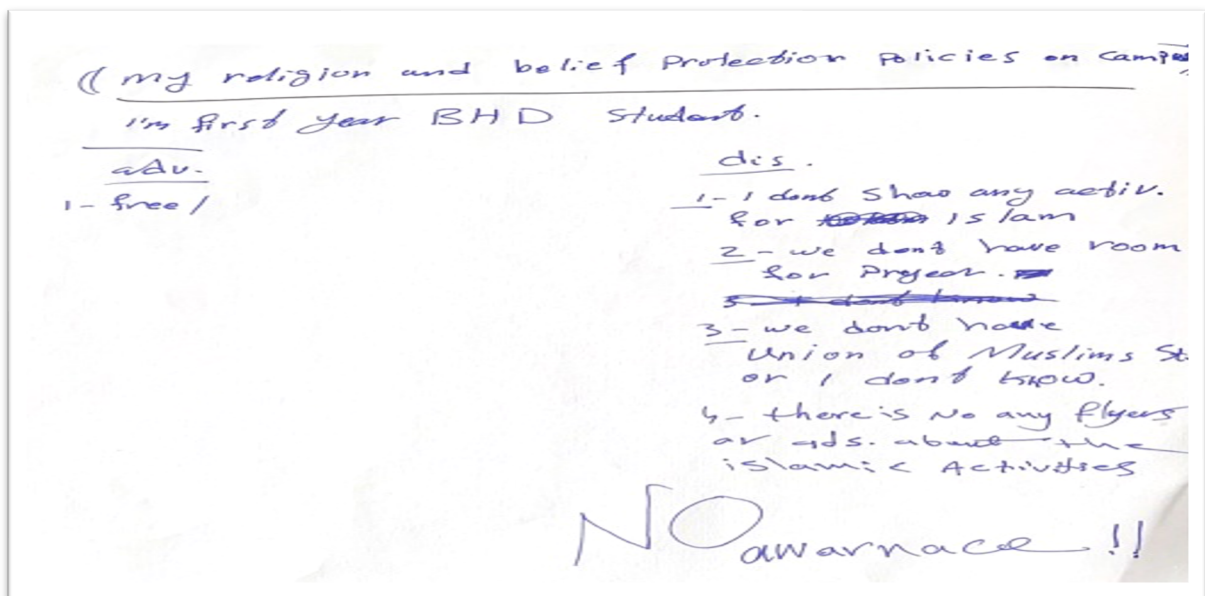 (( my religion and belief Protection Policies on Camp
I'm first year BHD Student.
adv.
1- free /
dis.
1- I dont Shao any activ.
for Islam
2- we dont have room
for Prayear.
3- we dont have
Union of Muslims St
or I dont know.
4- there is No any flyers
or ads. about the
islamic Activities
NO awarnace !!